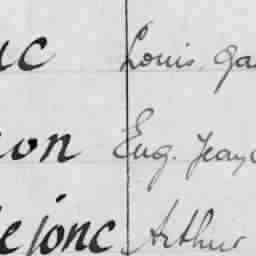 uc Louis Ga
on Eug. Jean
lejonc Arthur